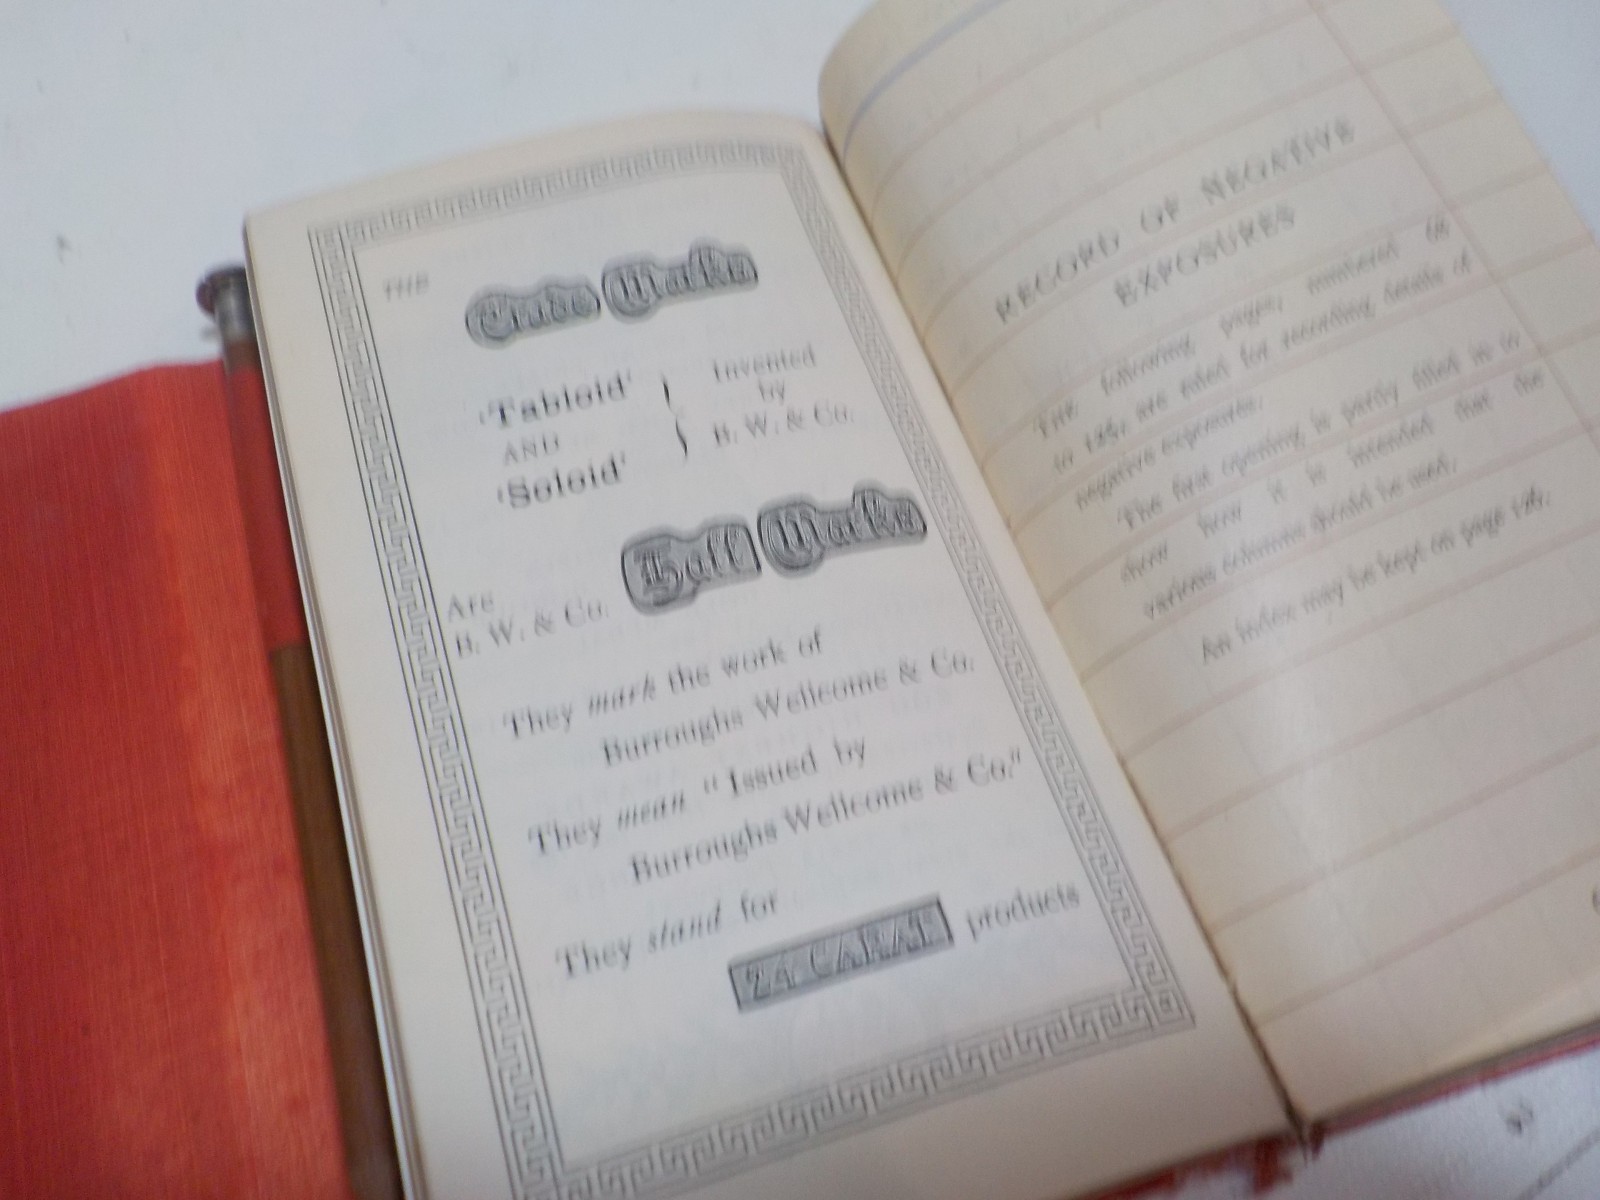 THE
Trade Marks
'Tabloid'
AND
'Soloid'
Invented
by
B. W. & Co.
Are
B. W. & Co.
Hall Marks
They mark the work of
Burroughs Wellcome & Co.
They mean "Issued by
Burroughs Wellcome & Co."
They stand for
24 CARAT products
RECORD OF NEGATIVE
EXPOSURES
THE following pages, numbered 68
to 125, are ruled for recording details of
negative exposures.
The first opening is partly filled in to
show how it is intended that the
various columns should be used.
An index may be kept on page 126.